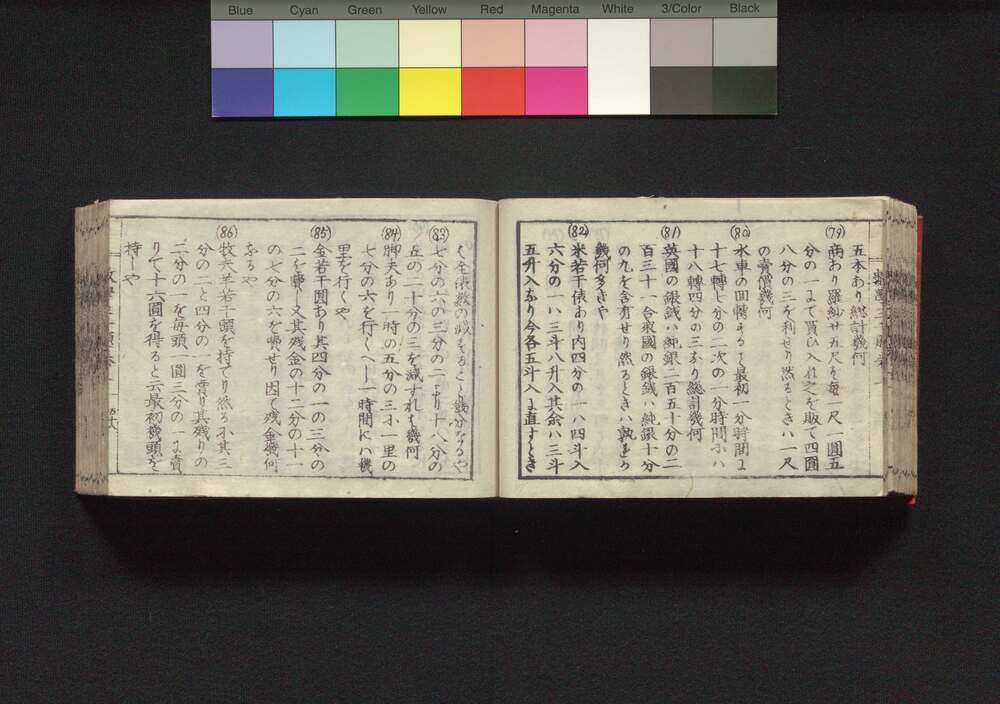 Blue Cyan Green Yellow Red Magenta White 3/Color Black
五本あり總計幾何
(79) 商あり羅紗廿九尺を每一尺一圓五
分の一まて買ひ入れ之を販て四圓
八分の三を利せり然るときハ一尺
の賣價幾何
(80) 水車の回轉するる最初一分時間ま
十七轉七分の二次の一分時間小ハ
十八轉四分の三なり總計幾何
(81) 英國の銀錢ハ純銀二百五十分の二
百三十一合衆國の銀錢ハ純銀十分
の九を含有せり然るときハ孰をか
幾何多きや
(82) 米若干俵あり內四分の一ハ四斗入
六分の一ハ三斗八升入其余ハ三斗
五升入なり今各五斗入ま直すとき
ハ全俵數の減することる幾分なるや
(83) 七分の六の三分の二より十八分の
五の二十分の三を減すれむ幾何
(84) 脚夫あり一時の五分の三小一里の
七分の六を行くへし一時間にハ幾
里を行くや
(85) 金若干圓あり其四分の一の三分の
二を費し又其残金の十二分の十一
の七分の六を費せり因て残金幾何
なるや
(86) 牧夫羊若干頭を持てり然る小其三
分の一と四分の一を賣り其殘りの
二分の一を每頭一圓三分の一ま賣
りて十六圓を得ると云最初幾頭を
持しや